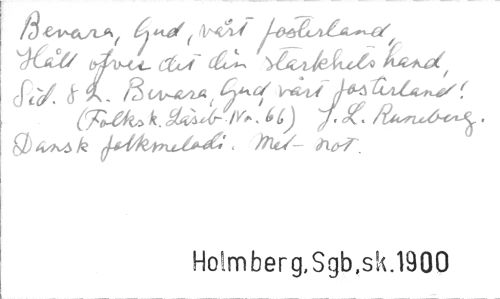 Bevara, Gud, vårt fosterland,
Håll öfver det din starkhets hand,
Sid. 82. Bevara, Gud, vårt fosterland!
(Folksk. Läseb. Nr. 66) J. L. Runeberg.
Dansk folkmelodi. Mel-not.
Holmberg, Sgb, sk. 1900